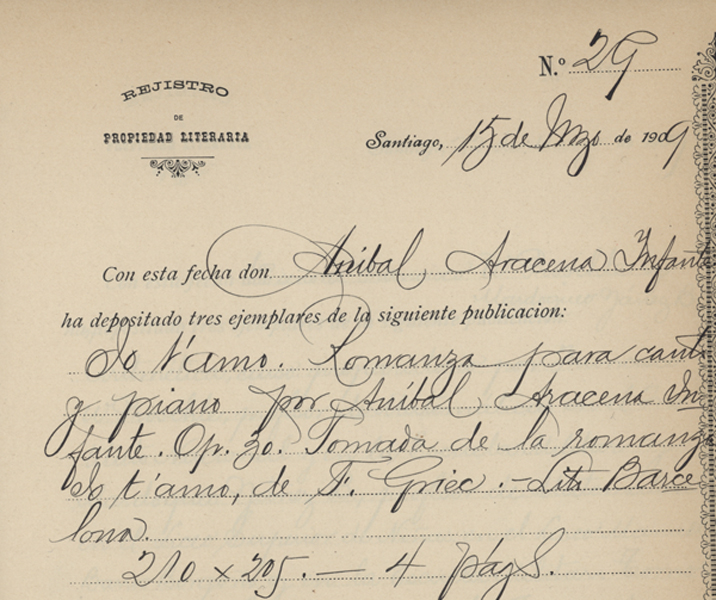 N.º 29
REJISTRO
DE
PROPIEDAD LITERARIA
Santiago, 15 de Mzo de 1909
Con esta fecha don Aníbal Aracena Infante
ha depositado tres ejemplares de la siguiente publicacion:
Io t'amo. Romanza para canto
y piano por Aníbal Aracena In-
fante. Op. 30. Tomada de la romanza
Io t'amo, de F. Griec. - Lit. Barce-
lona.
210 x 205. — 4 págs.